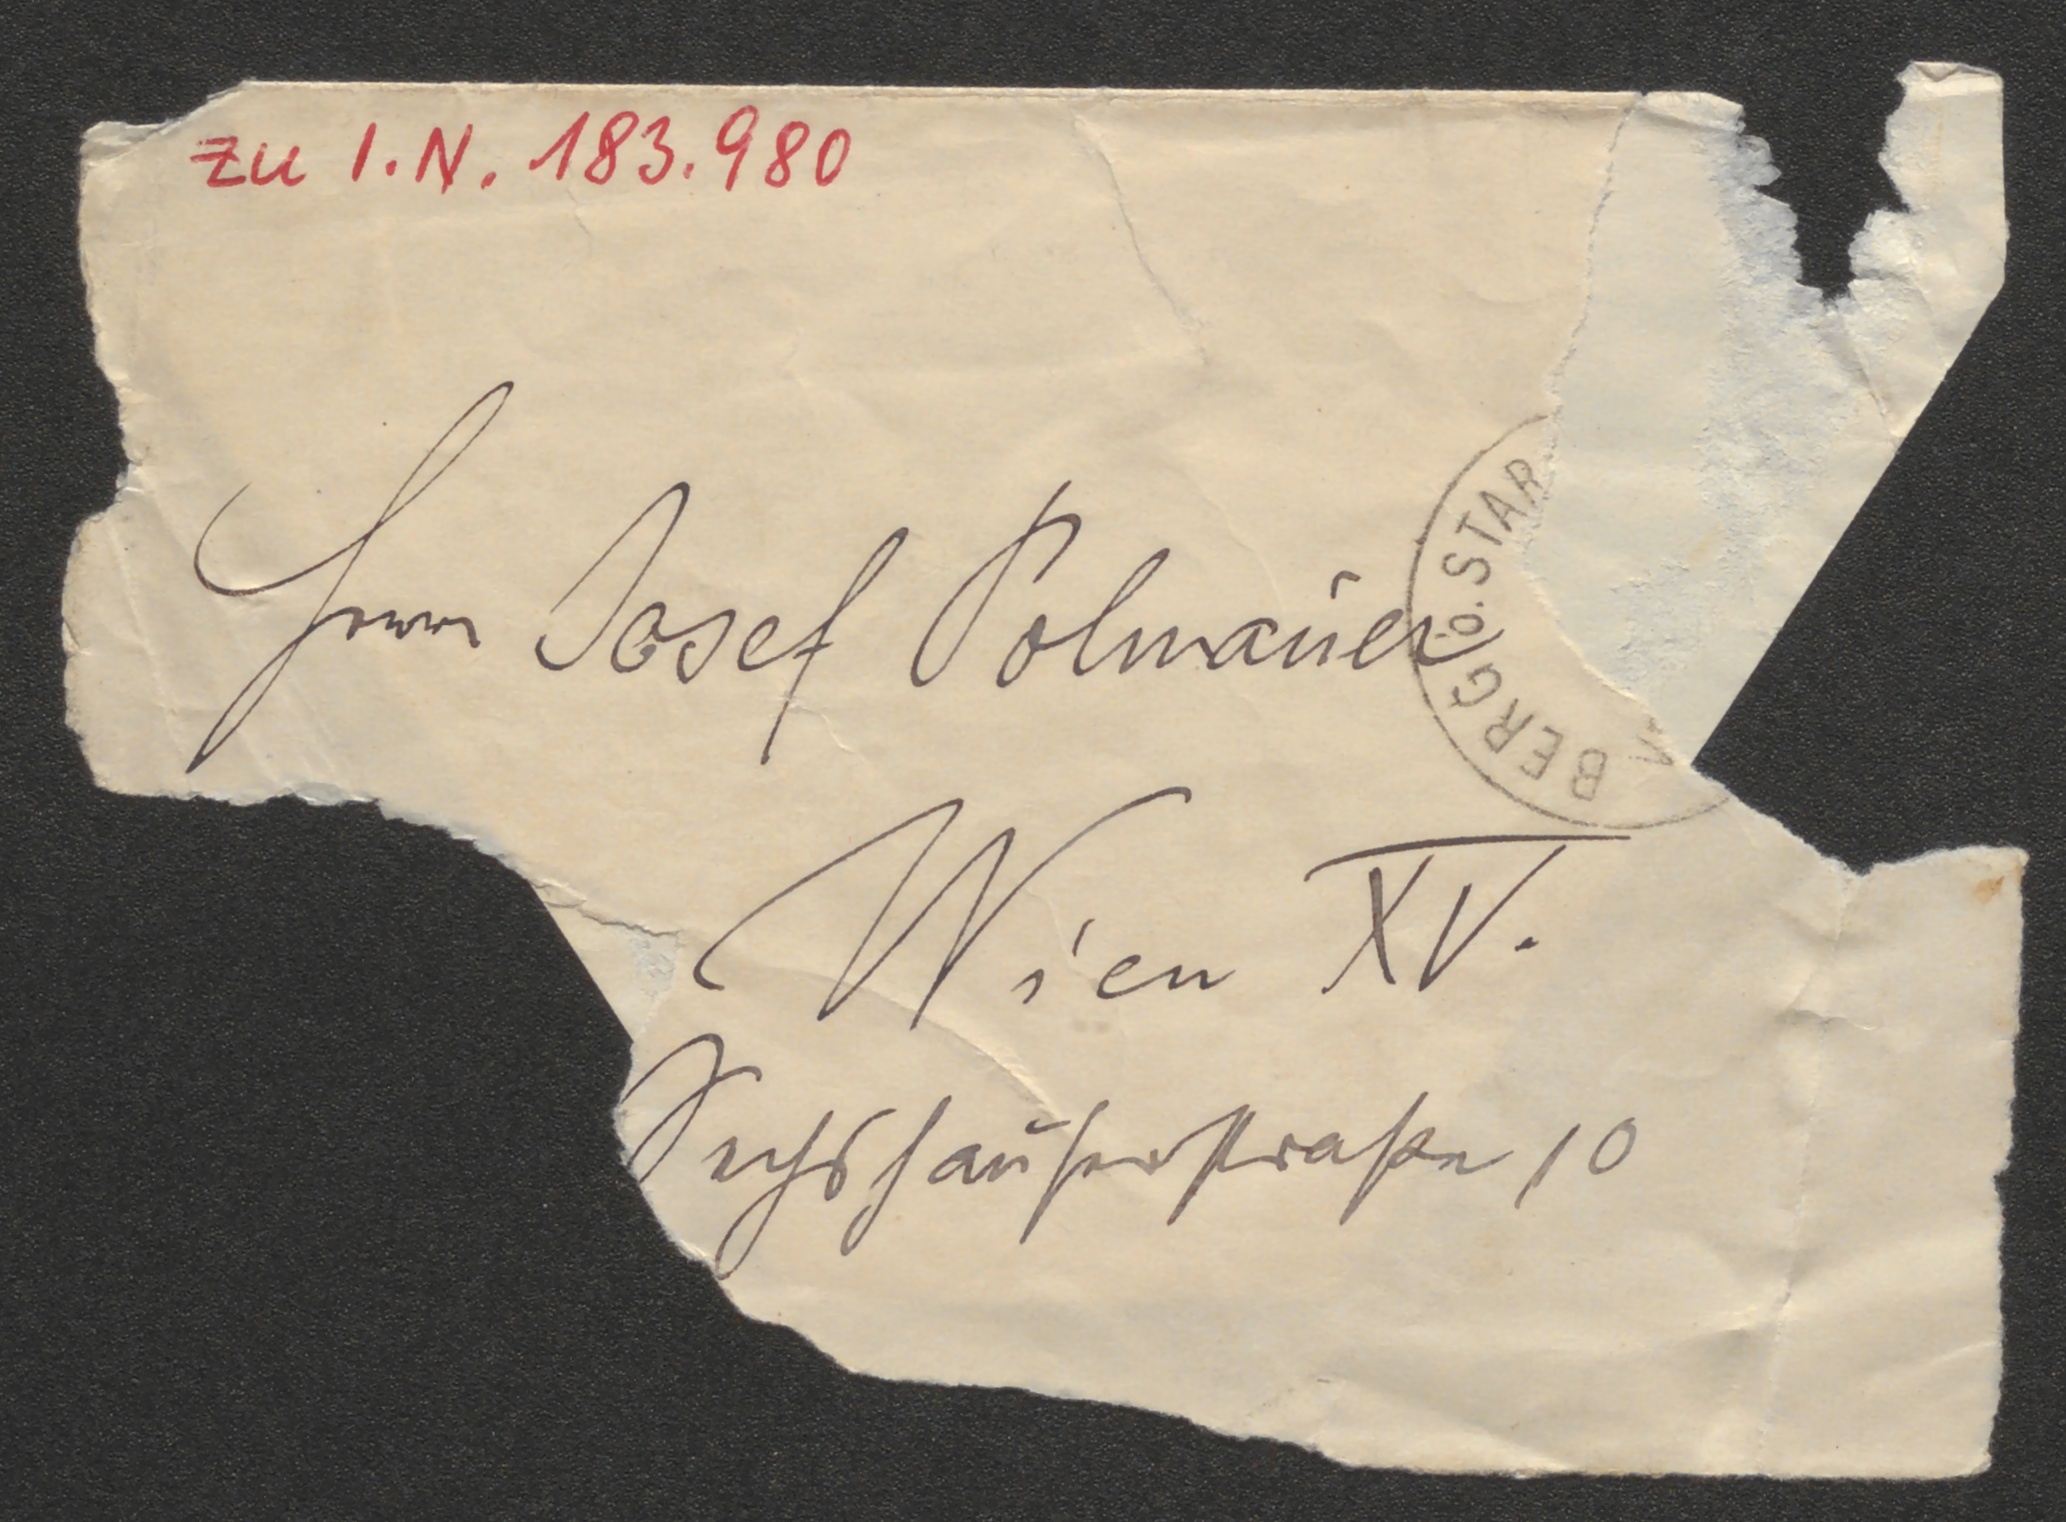 zu I.N. 183.980
Herrn Josef Polnauer
BERG O. STAR
Wien XV.
Sechshauserstraße 10